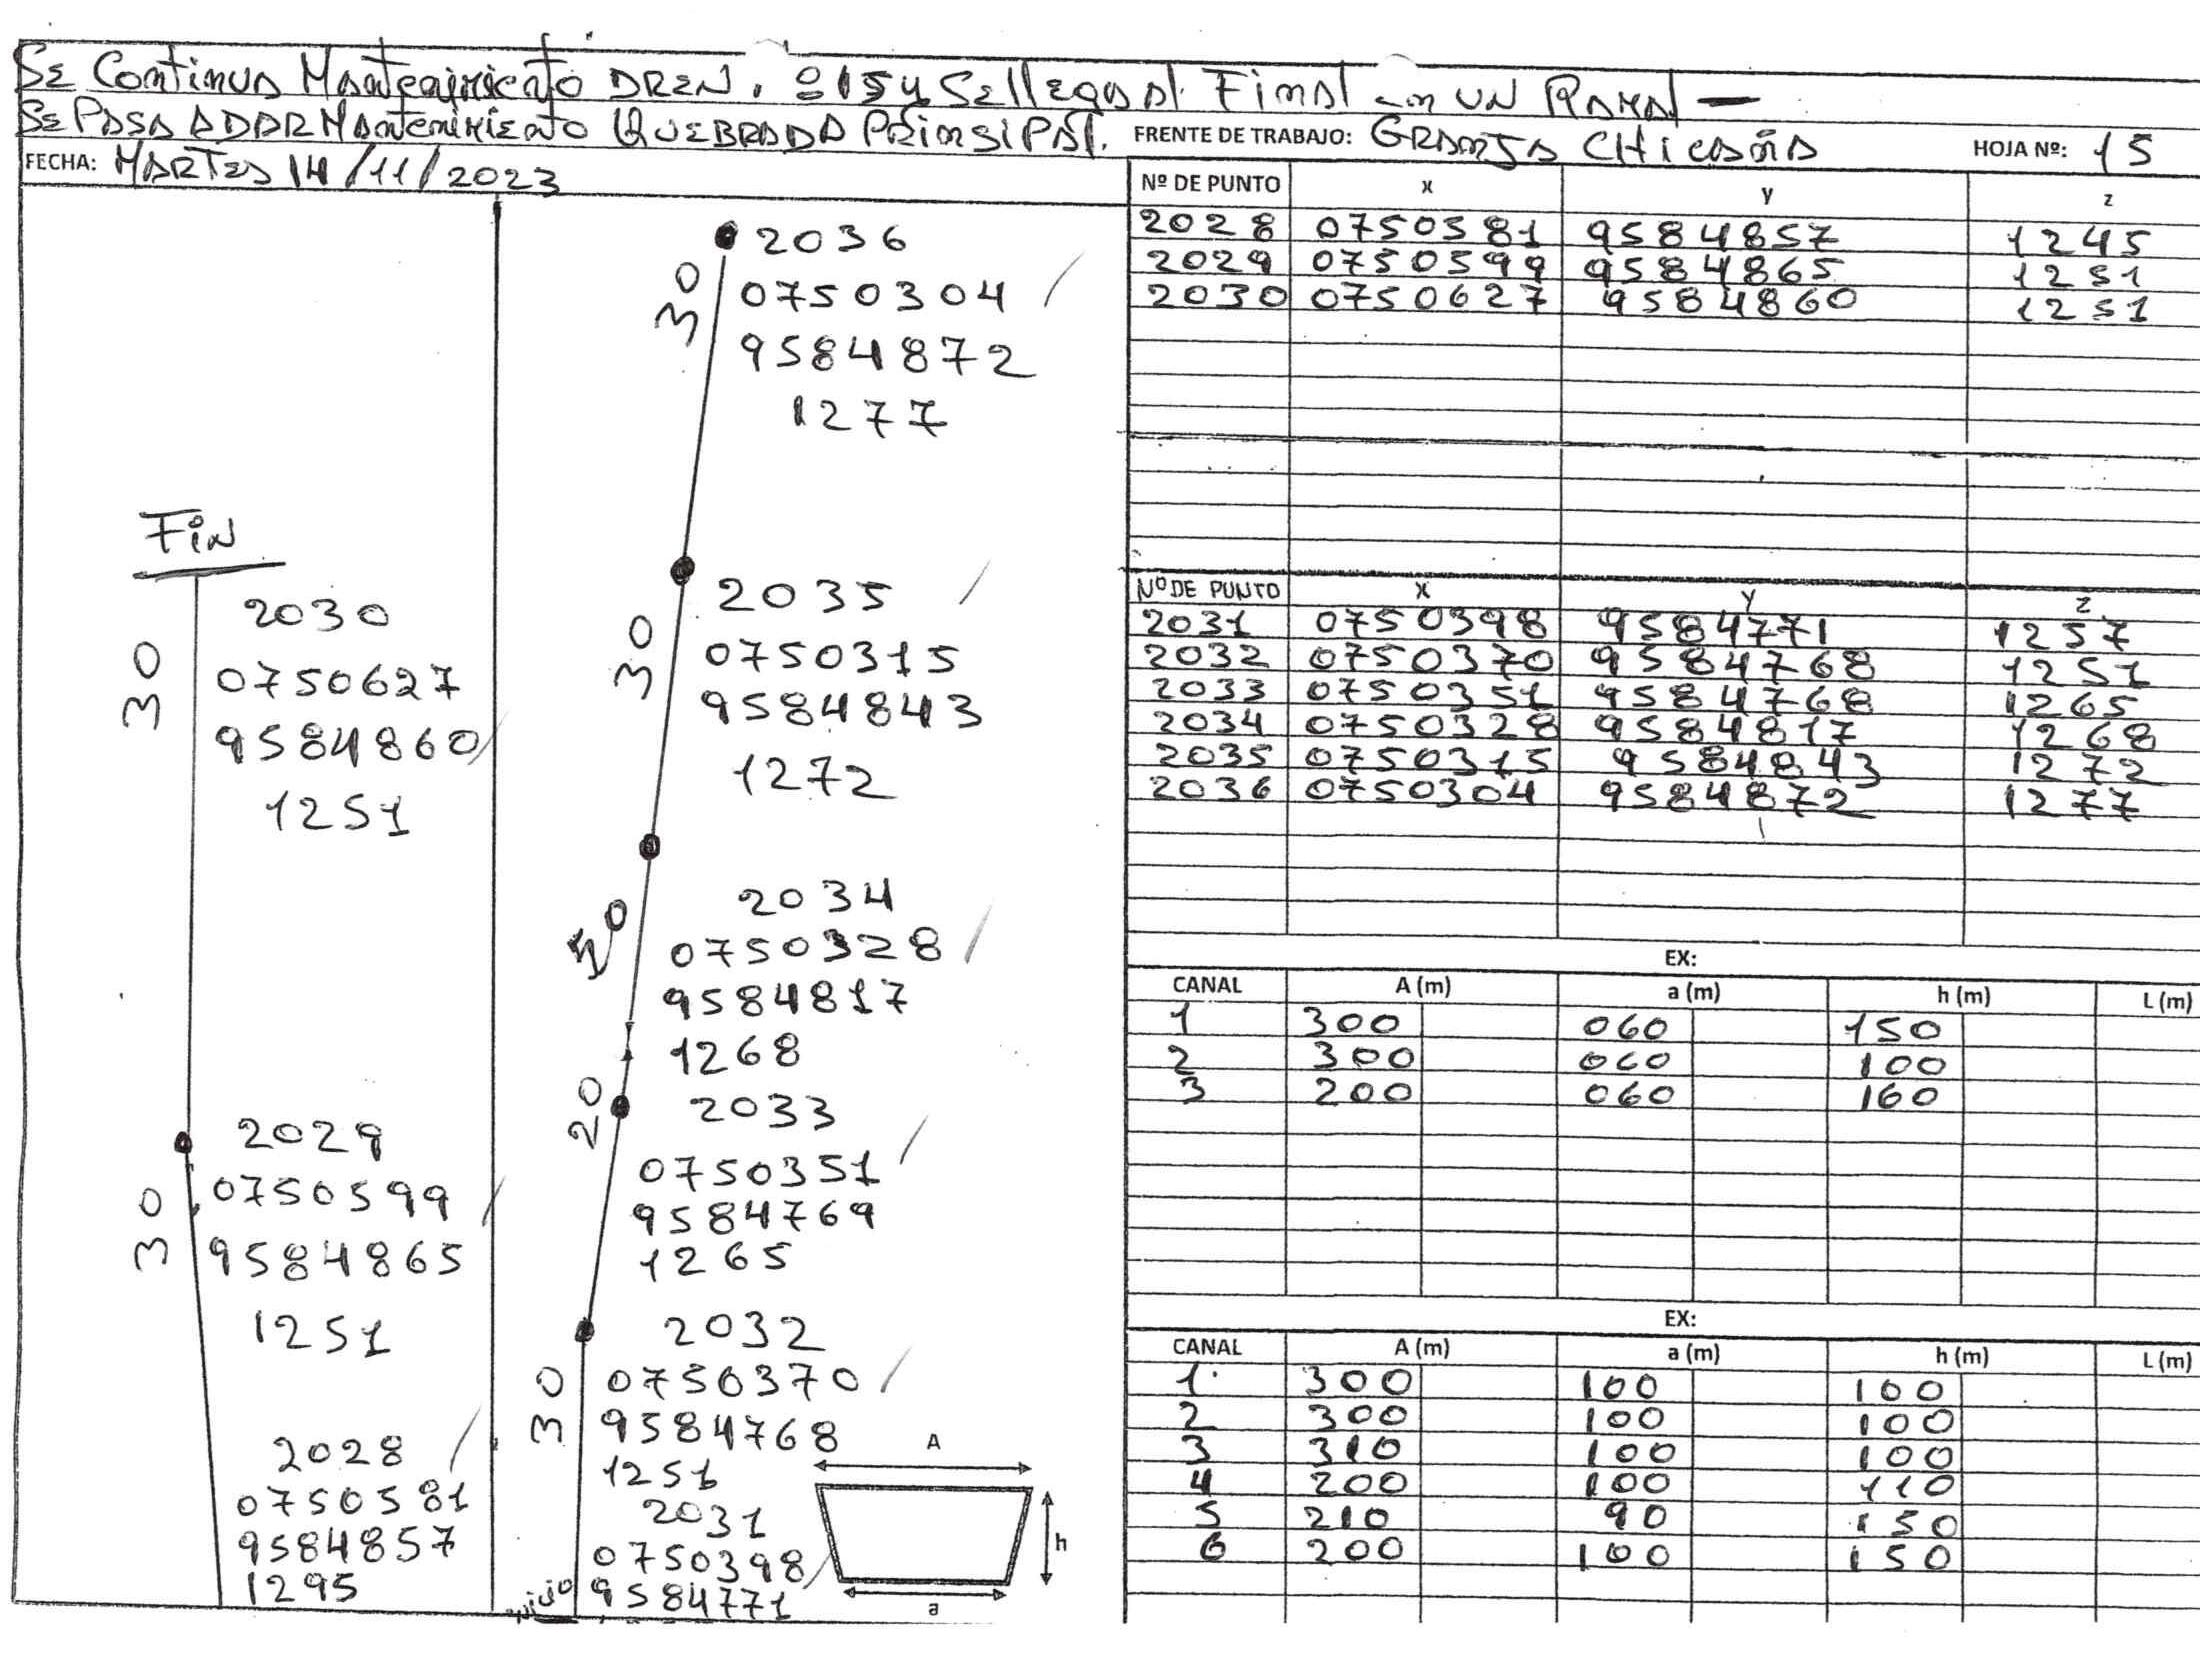 SE Continua Manteniniento DREN. 8154 Se llega al Final en UN RAMAL —
SE PASA A DAR Manteniniento QUEBRADA PRinsiPAL.
FRENTE DE TRABAJO: GRANJA CHicaña
HOJA Nº: 15
FECHA: MARTES 14/11/2023
Fin
30
2030
0750627
9584860
1251
30
2029
0750599
9584865
1251
2028
0750581
9584857
1295
30
2036
0750304
9584872
1277
30
2035
0750315
9584843
1272
2034
0750328
9584817
1268
20
2033
0750351
9584769
1265
30
2032
0750370
9584768
1251
2031
0750398
9584771
A
h
a
Nº DE PUNTO x y z
2028 0750581 9584857 1245
2029 0750599 9584865 1251
2030 0750627 9584860 1251
Nº DE PUNTO X Y Z
2031 0750398 9584771 1257
2032 0750370 9584768 1251
2033 0750351 9584768 1265
2034 0750328 9584817 1268
2035 0750315 9584843 1272
2036 0750304 9584872 1277
EX:
CANAL A (m) a (m) h (m) L (m)
1 300 060 150
2 300 060 100
3 200 060 160
EX:
CANAL A (m) a (m) h (m) L (m)
1 300 100 100
2 300 100 100
3 310 100 100
4 200 100 110
5 210 90 150
6 200 100 150